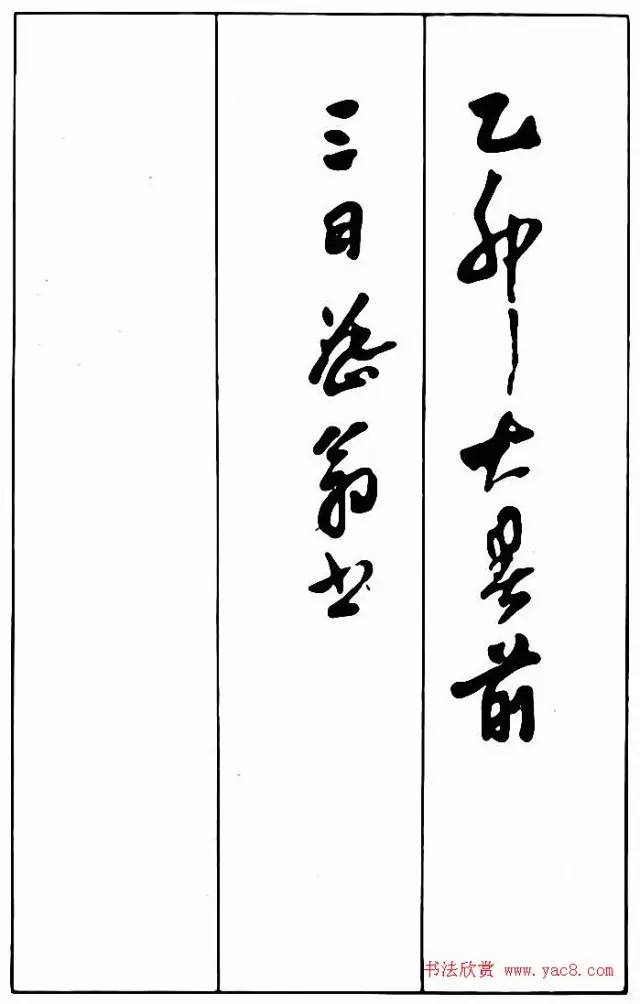 乙卯大暑前
三日翁书
书法欣赏 www.yac8.com